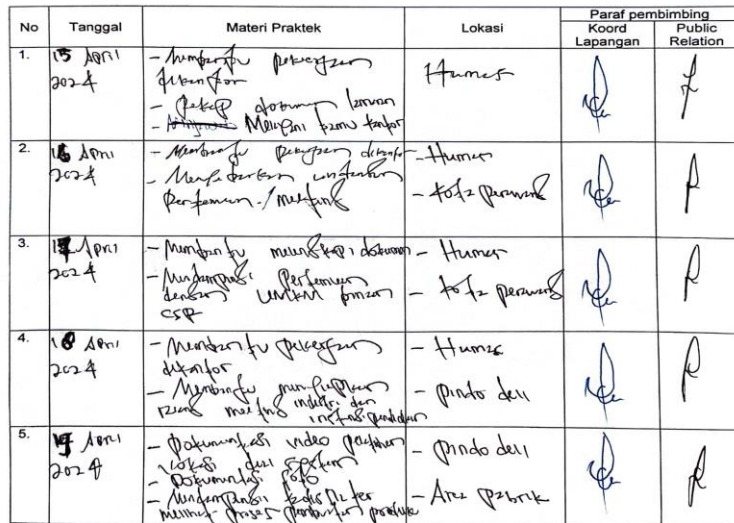 No Tanggal Materi Praktek Lokasi Paraf pembimbing
Koord Lapangan Public Relation
1. 15 April 2024
- Membantu pekerjaan
dikantor
- Rekap dokumen
- Melayani tamu kantor
Humas
2. 16 April 2024
- Membantu pekerjaan dikantor
pertemuan / meeting
- Humas
- kota perawang
3. 17 April 2024
- Membantu melengkapi dokumen
- Mendampingi pertemuan
dengan UMKM binaan
CSR
- Humas
- kota perawang
4. 18 April 2024
- Membantu pekerjaan
dikantor
- Membantu menyiapkan
ruang meeting industri dan
- Humas
- pindo deli
5. 19 April 2024
- Dokumentasi video
lokasi dari
- Dokumentasi foto
- Mendampingi
melihat proses pembuatan produk
- pindo deli
- Area pabrik